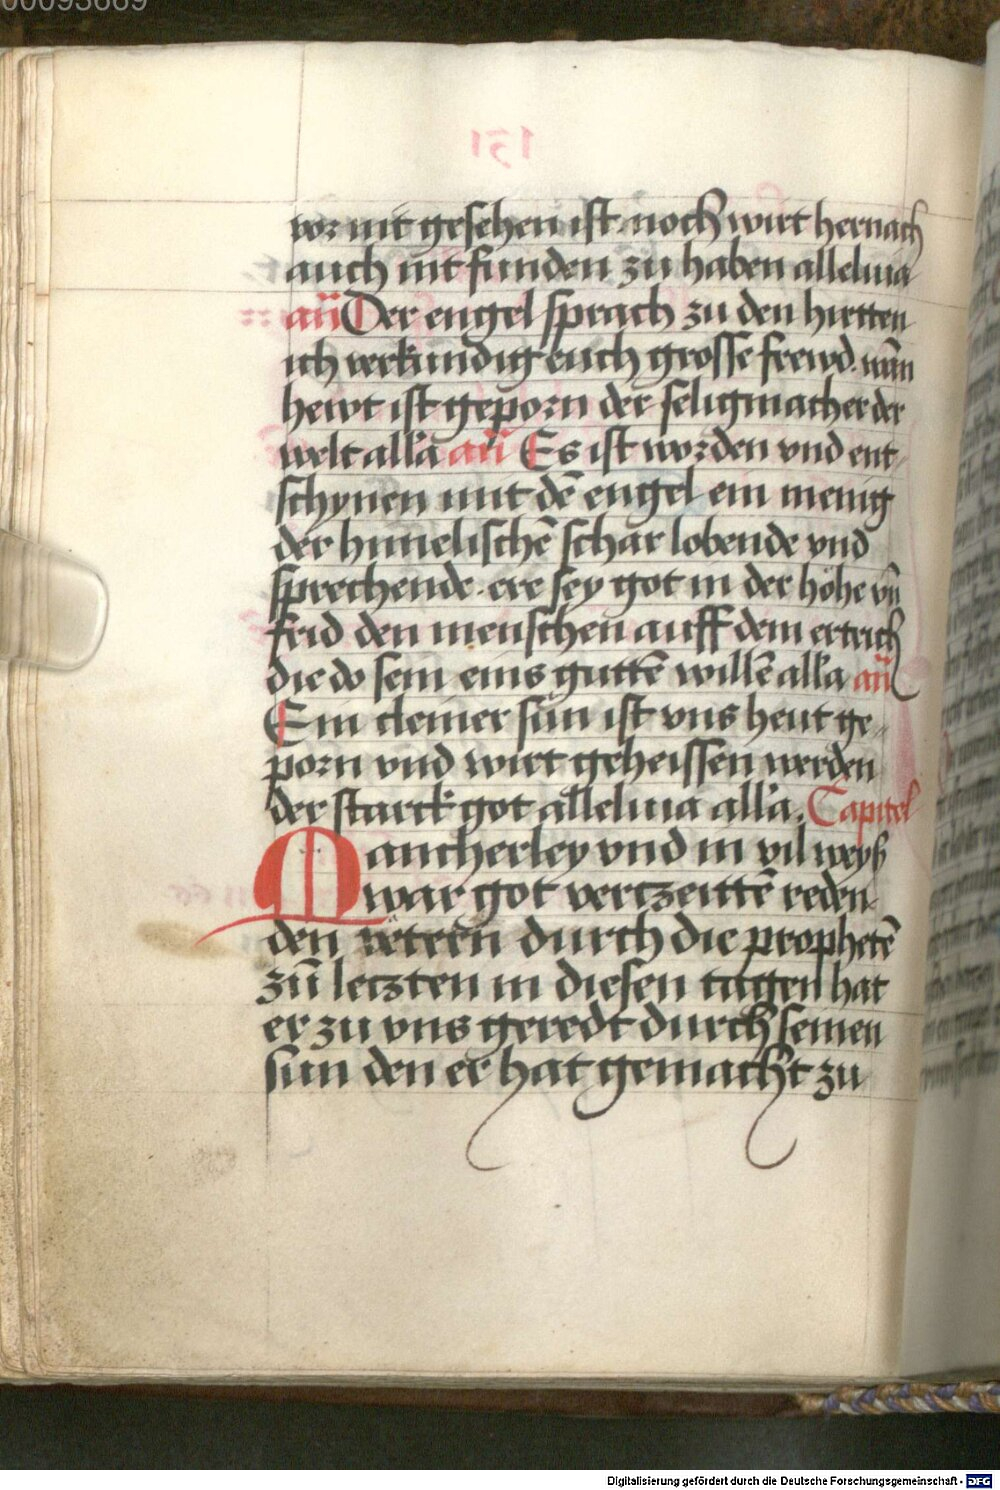 00093669
131
vor nit gesehen ist. noch wirt hernach
auch nit funden zu haben alleluia
an̄ Der engel sprach zu den hirtten
ich verkundig euch grosse frewd. wan̄
hewt ist geporn der seligmacher der
welt all'a an̄ Es ist worden vnd ent-
schynen mit dē engel ein menig
der himelischē schar lobende vnd
sprechende. ere sey got in der höhe vn̄
frid den menschen auff dem ertrich
die do sein eins guttē willē all'a an̄
Ein cleiner sun ist vns heut ge-
porn vnd wirt geheissen werden
der starck got alleluia all'a. Capitel
Mancherley vnd in vil weyß
war got vertzeittē reden
den vetern durch die prophetē
zū letzten in diesen tagen hat
er zu vns geredt durch seinen
sun den er hat gemacht zu
Digitalisierung gefördert durch die Deutsche Forschungsgemeinschaft - DFG